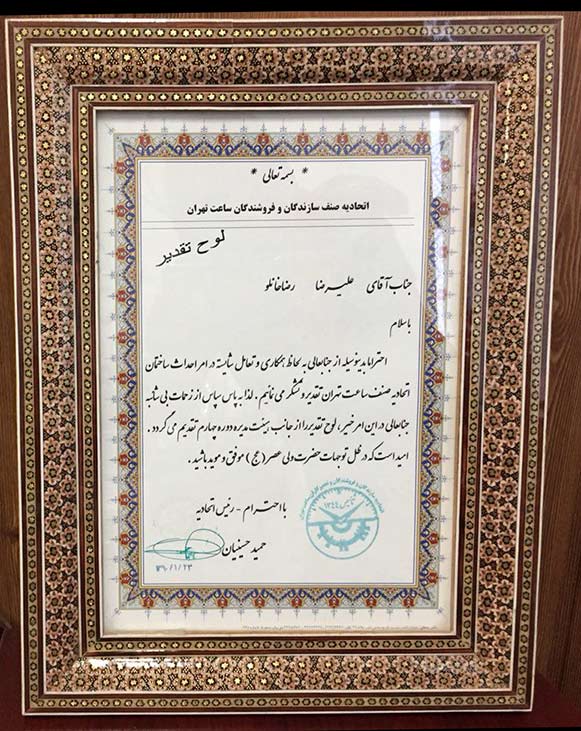 * بسمه تعالی *
اتحادیه صنف سازندگان و فروشندگان ساعت تهران
لوح تقدیر
جناب آقای علیرضا رضاخانلو
باسلام
احتراما بدینوسیله از جنابعالی به لحاظ همکاری و تعامل شایسته در امر احداث ساختمان
اتحادیه صنف ساعت تهران تقدیر و تشکر می نمائیم . لذا به پاس سپاس از زحمات بی شائبه
جنابعالی در این امر خیر ، لوح تقدیر را از جانب هیئت مدیره دوره چهارم تقدیم می گردد .
امید است که در ظل توجهات حضرت ولی عصر (عج) موفق و موید باشید .
با احترام - رئیس اتحادیه
حمید حسینیان
۹۰/۱/۲۳
تأسیس ۱۳۴۴